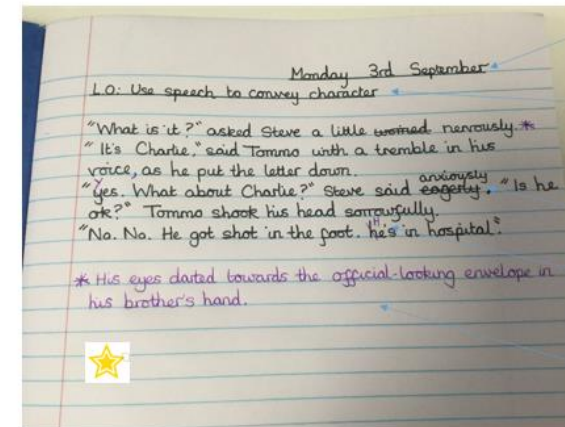 Monday 3rd September
L.O: Use speech to convey character
"What is it?" asked Steve a little worried nervously.*
"It's Charlie," said Tommo with a tremble in his
voice, as he put the letter down.
"Yes. What about Charlie?" Steve said eagerly anxiously. "Is he
ok?" Tommo shook his head sorrowfully.
"No. No. He got shot in the foot. He's in hospital."
* His eyes darted towards the official-looking envelope in
his brother's hand.